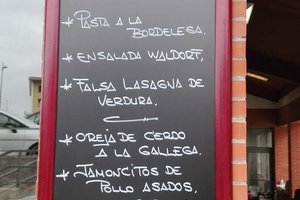 * PASTA A LA
BORDELESA.
* ENSALADA WALDORF,
* FALSA LASAGNA DE
VERDURA.
* OREJA DE CERDO
A LA GALLEGA.
* JAMONCITOS DE
POLLO ASADOS.